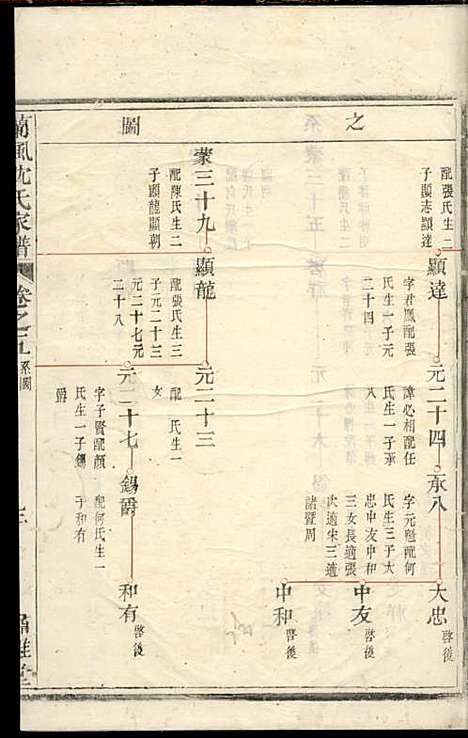 之
圖
配張氏生二
子顯志顯達
顯達
字君鳳配張
氏生一子元
二十四
元二十四
諱必相配任
氏生一子承
八
承八
字元魁配何
氏生三子大
忠中友中和
三女長適張
次適宋三適
諸暨周
大忠
啓後
中友
啓後
中和
啓後
蒙三十九
配陳氏生二
子顯龍顯朝
顯龍
配張氏生三
子元二十三
元二十七元
二十八
元二十三
配 氏生一
女
元二十七
字子賢配顏
氏生一子錫
爵
錫爵
配何氏生一
子和有
和有
啓後
蘭風沈氏家譜
卷之
系圖
堂